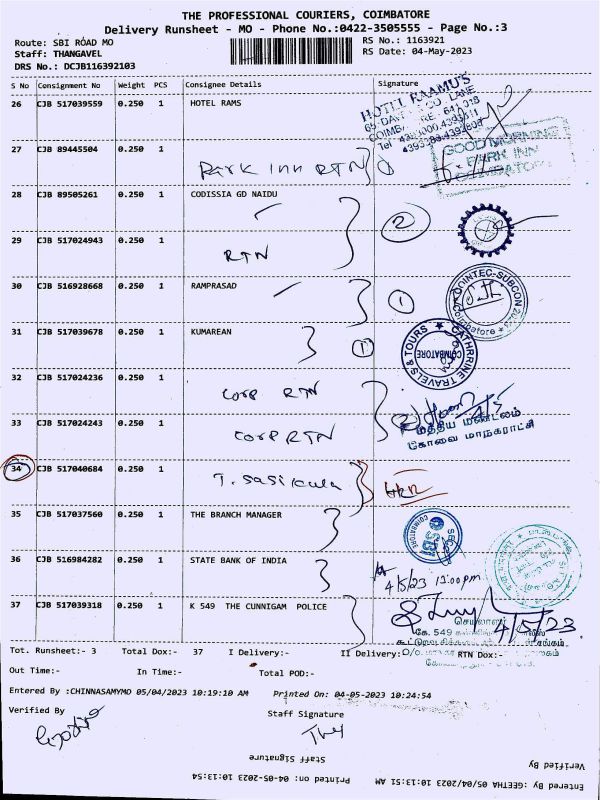 THE PROFESSIONAL COURIERS, COIMBATORE
Delivery Runsheet - MO - Phone No.:0422-3505555 - Page No.:3
Route: SBI ROAD MO
RS No.: 1163921
Staff: THANGAVEL
RS Date: 04-May-2023
DRS No.: DCJB116392103
S No Consignment No Weight PCS Consignee Details Signature
26 CJB 517039559 0.250 1 HOTEL RAMS
HOTEL RAAMU'S
27 CJB 89445504 0.250 1
PARK INN RTN
GOOD MORNING
PARK INN
28 CJB 89505261 0.250 1 CODISSIA GD NAIDU
2
29 CJB 517024943 0.250 1
RTN
30 CJB 516928668 0.250 1 RAMPRASAD
1
INTEC-SUBCON 2023
31 CJB 517039678 0.250 1 KUMAREAN
1
CATHRRINE TRAVELS & TOURS
COIMBATORE
32 CJB 517024236 0.250 1
corp RTN
33 CJB 517024243 0.250 1
corp RTN
2
மத்திய மண்டலம்
கோவை மாநகராட்சி
34 CJB 517040684 0.250 1
T. Sasikala
35 CJB 517037560 0.250 1 THE BRANCH MANAGER
SBI
36 CJB 516984282 0.250 1 STATE BANK OF INDIA
4/5/23 12:00pm
37 CJB 517039318 0.250 1 K 549 THE CUNNIGAM POLICE
4/5/23
கே. 549
Tot. Runsheet:- 3 Total Dox:- 37 I Delivery:- II Delivery: RTN Dox:-
Out Time:- In Time:- Total POD:-
Entered By :CHINNASAMYMO 05/04/2023 10:19:10 AM Printed On: 04-05-2023 10:24:54
Verified By
Staff Signature
Staff Signature
Verified By
Entered By: GEETHA 05/04/2023 10:13:51 AM Printed on: 04-05-2023 10:13:54